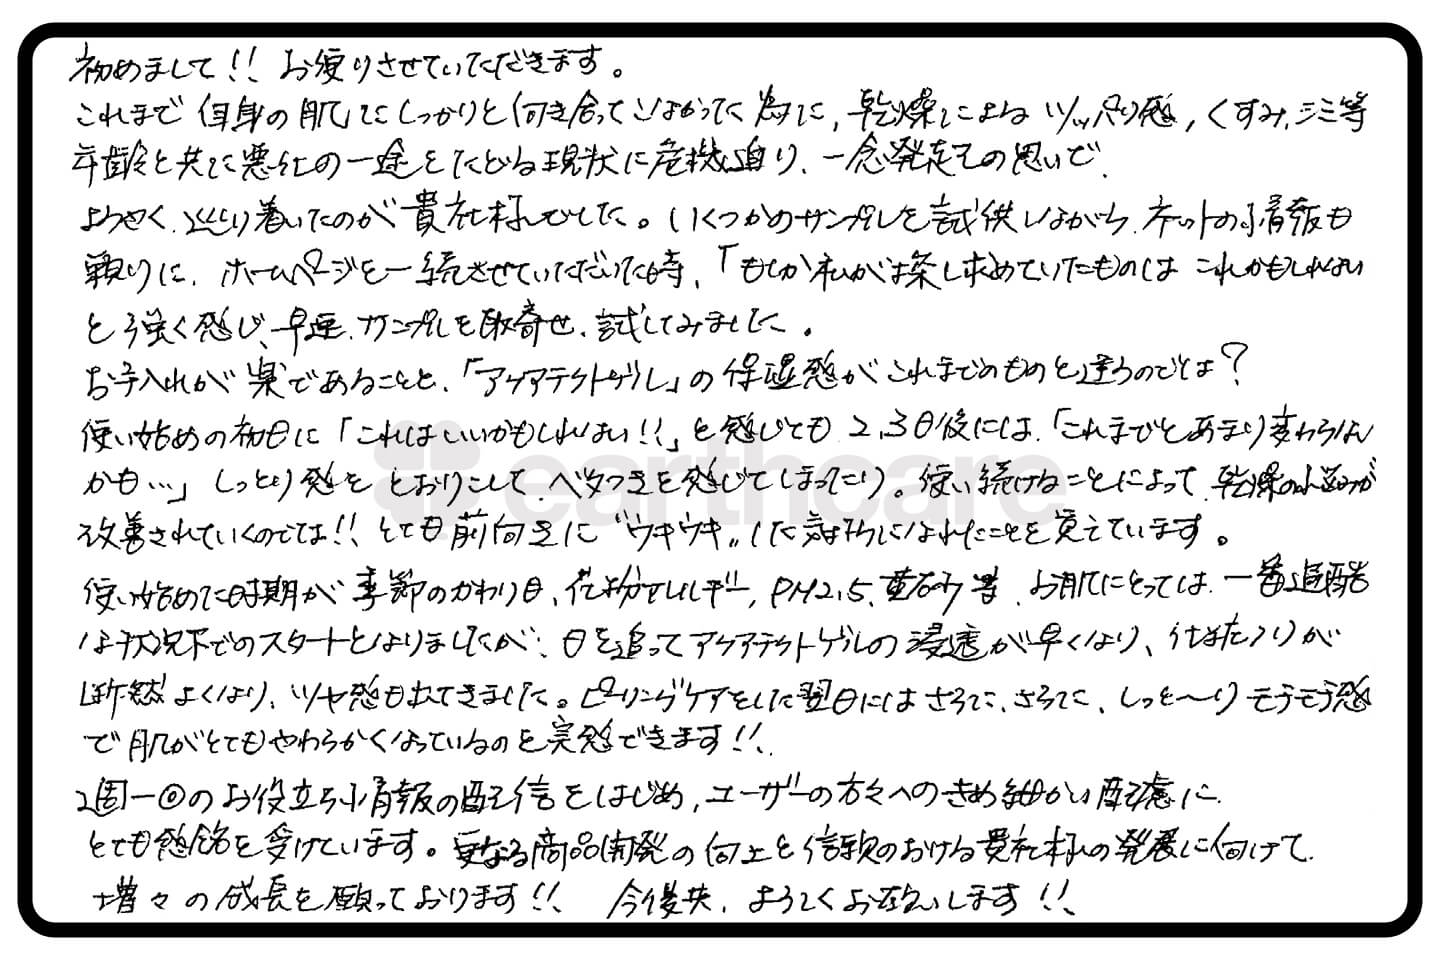 初めまして!! お便りさせていただきます。
これまで自身の肌にしっかりと向き合っていなかった為に、乾燥によるツッパリ感、くすみ、シミ等
年齢と共に悪化の一途をたどる現状に危機迫り、一念発起の思いで、
ようやく、辿り着いたのが貴社様でした。いくつかのサンプルを試供しながら、ネットの情報も
頼りに、ホームページを一読させていただいた時、「もしか私が探し求めていたものは これかもしれない
と強く感じ、早速、サンプルを取寄せ、試してみました。
お手入れが楽であることと、「アクアテクトゲル」の保湿感がこれまでのものと違うのでは?
使い始めの初日に「これはいいかもしれない!!」と感じても 2、3日後には、「これまでとあまり変わらない
かも…」しっとり感を とおりこして、ベタつきを感じてしまったり。使い続けることによって、乾燥の悩みが
改善されていくのでは!! とても前向きに“ウキウキ„した気持ちになれたことを覚えています。
使い始めた時期が季節のかわり目、花粉アレルギー、PM2.5、黄砂等、お肌にとっては、一番過酷
な状況下でのスタートとなりましたが、日を追ってアクアテクトゲルの浸透が早くなり、化粧ノリが
断然よくなり、ツヤ感も出てきました。ピーリングケアをした翌日にはさらに、さらに、しっと〜りモチモチ感
で肌がとてもやわらかくなっているのを実感できます!!
2週一回のお役立ち情報の配信をはじめ、ユーザーの方々へのきめ細かい配慮に
とても感銘を受けています。更なる商品開発の向上と信頼のおける貴社様の発展に向けて
増々の成長を願っております!! 今後共、よろしくお願いします!!
earthcare